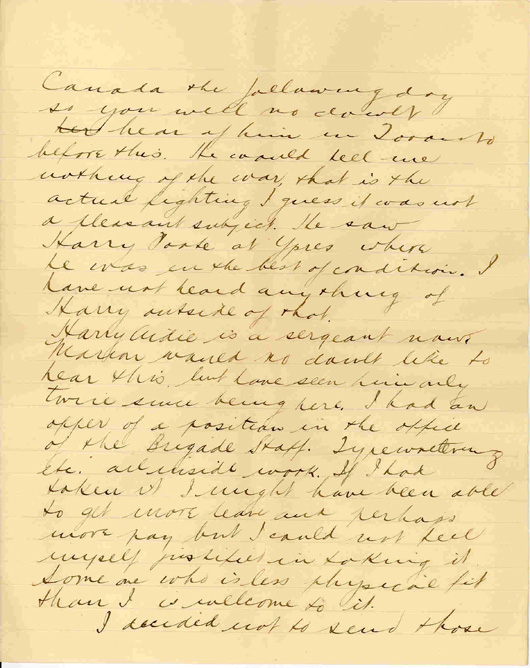 Canada the following day
so you will no doubt
hear of him in Toronto
before this. He would tell me
nothing of the war, that is the
actual fighting I guess it was not
a pleasant subject. He saw
Harry Poote at Ypres where
he was in the best of condition. I
have not heard anything of
Harry outside of that.
Harry Aidie is a sergeant now.
Marion would no doubt like to
hear this, but have seen him only
twice since being here. I had an
offer of a position in the office
of the Brigade Staff. Typewritering
etc. all inside work. If I had
taken it I might have been able
to get more leave and perhaps
more pay but I could not feel
myself justified in taking it
Some one who is less physical fit
than I is welcome to it.
I decided not to send those